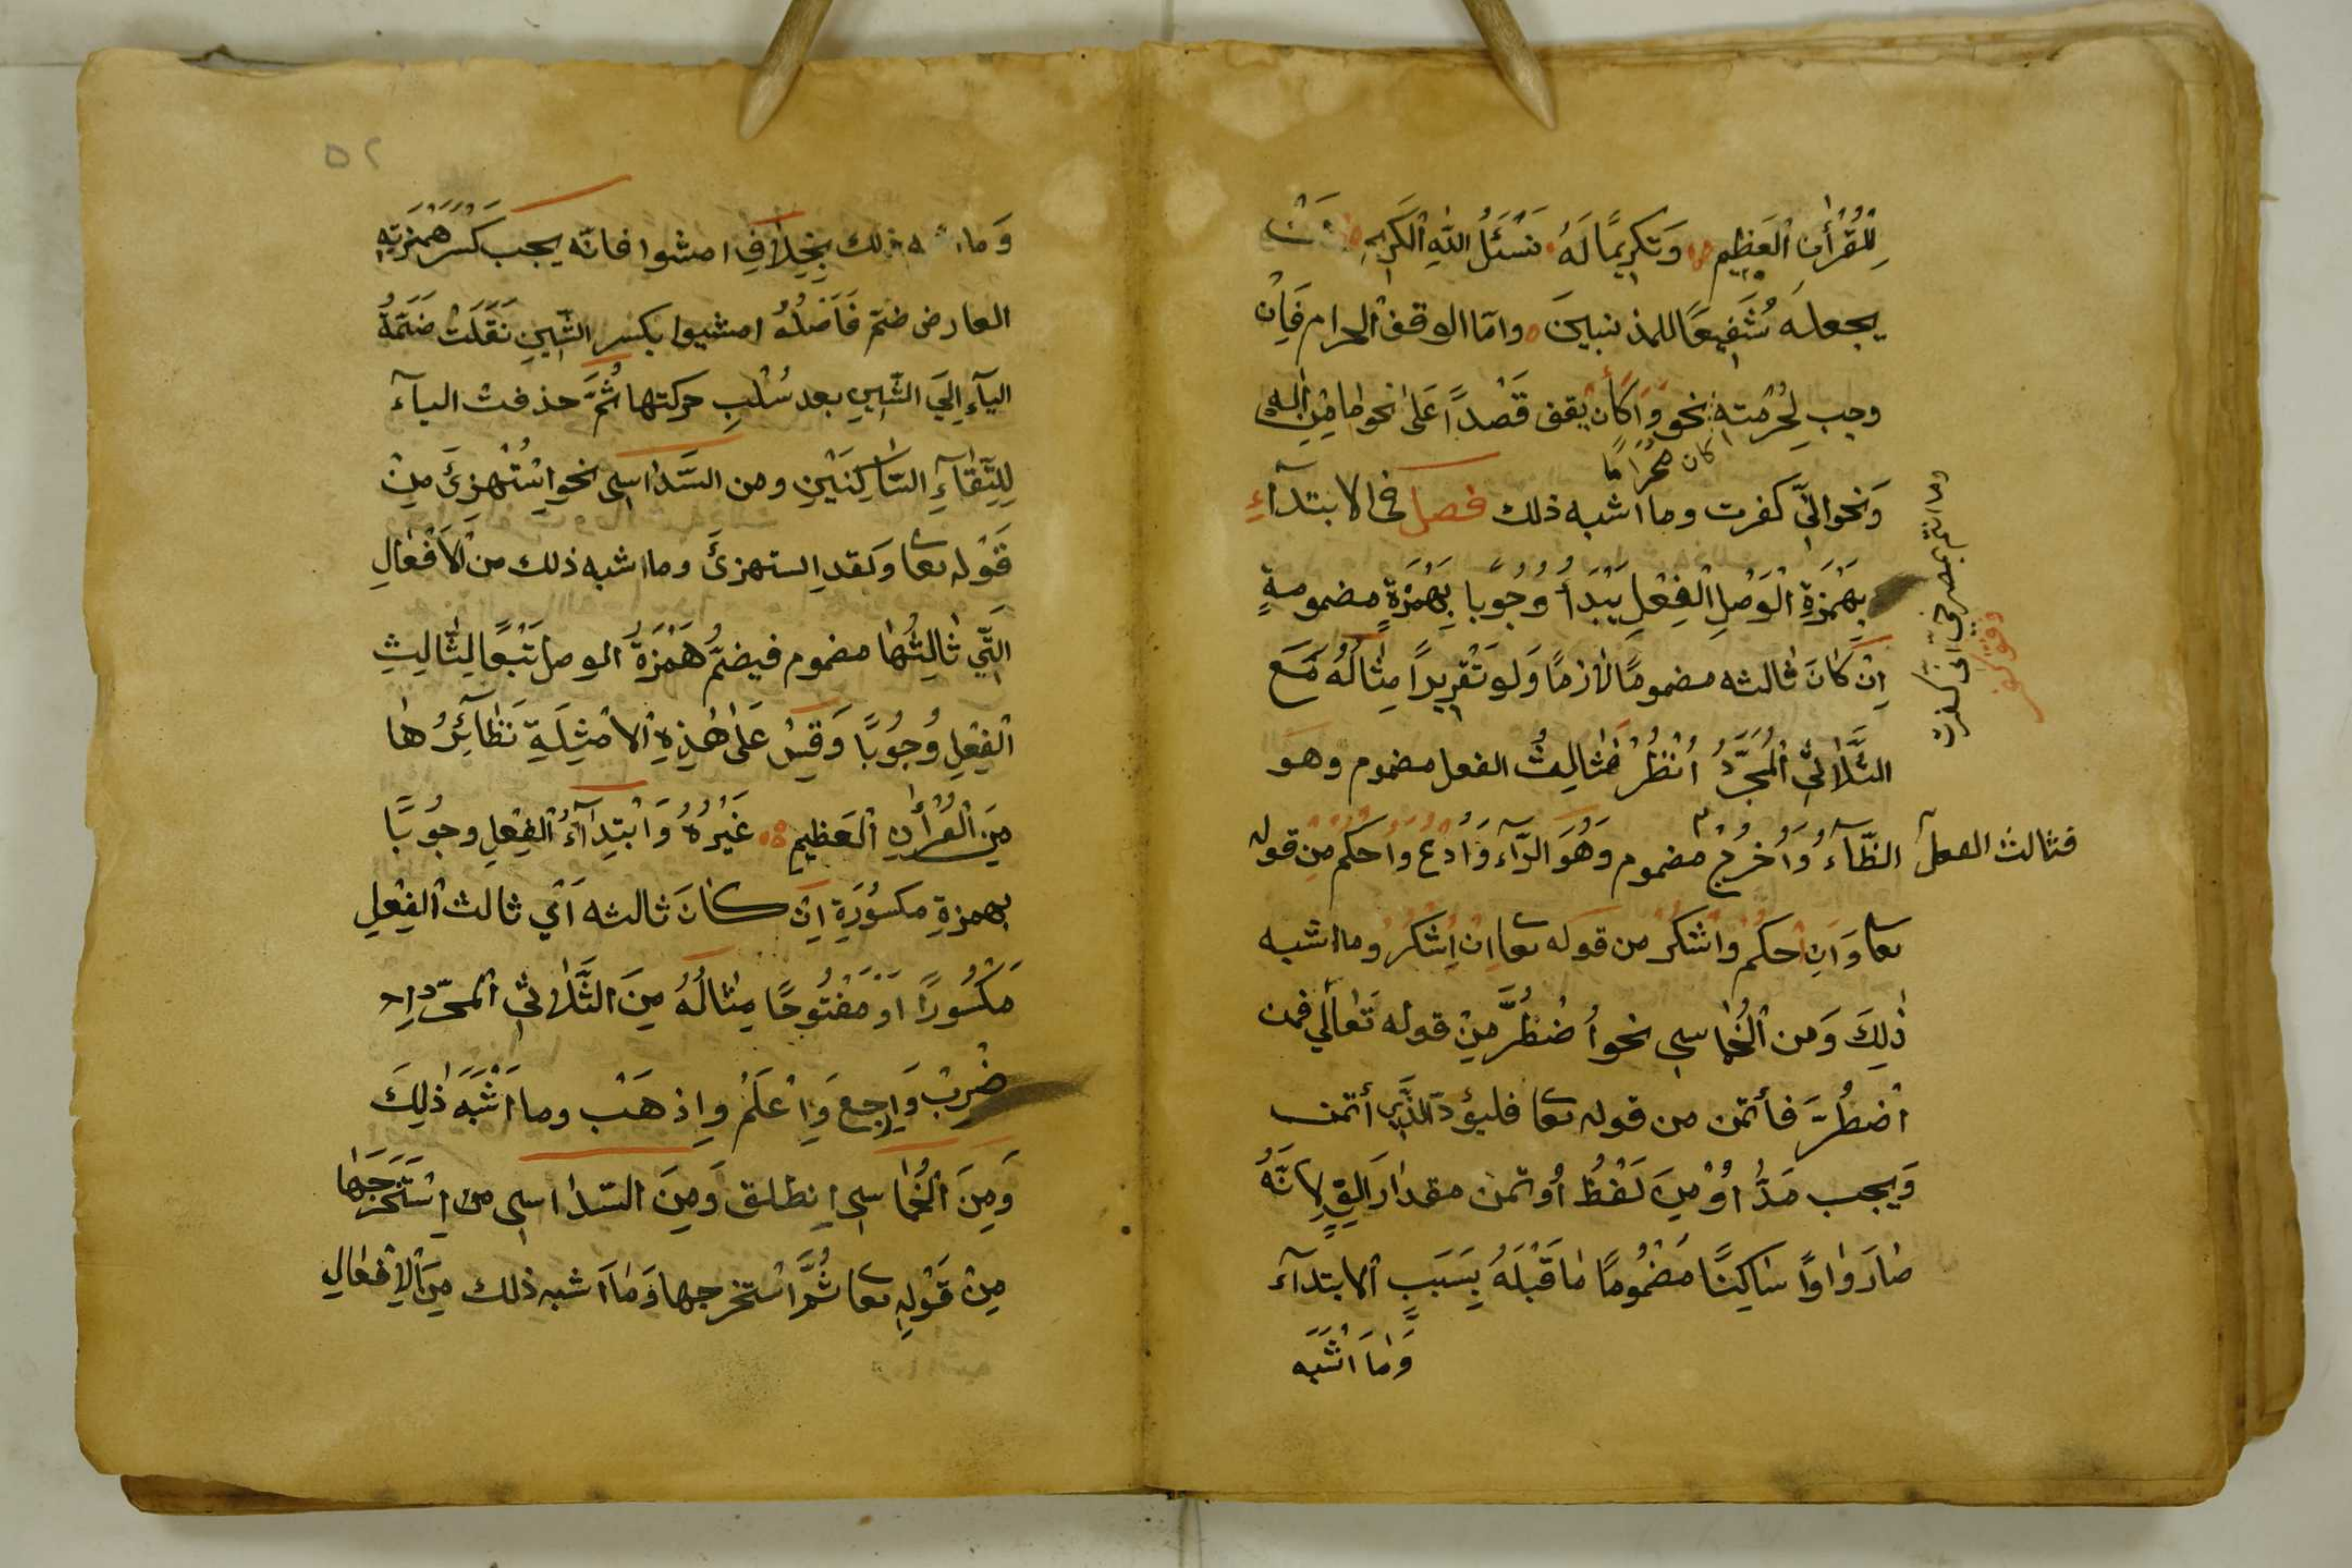 لِلْقُرْأٰنِ الْعَظِيمِ وَتَكْرِيمًا لَهُ نَسْئَلُ اللّٰهِ الْكَرِيمِ
يجعلهَ شَفِيعًا للمذنبينَ وامّا الوقف الحرام فَإِنْ
وجب لِحُرْمَتِهِ نحو وَاِكَانْ يقف قَصْداً عَلٰى نحو مٰا مِنْ اِلٰهٍ
كان مُحْرَامًا
وَنَحْوِ اِنّي كفرت وما اشبه ذلك فصل فى الابتدآءِ
بِهَمْزَةِ الْوَصْلِ الْفِعْلِ يَبْدَأُ وُجُوبًا بِهَمْزَةٍ مضمومةٍ
اِنْ كٰانَ ثالثه مضمومًا لٰازمًا وَلَو تَقْرِيرًا مِثٰالُهُ مَعَ
الثَّلٰاثيِّ الْمُجَرَّدُ اُنْظُرْ فَثٰالِثُ الفعل مضموم وهو
الظّآءُ وَاُخْرُجْ مضموم وَهُوَ الرَّآء وَادْعُ وَاُحكم مِنْ قوله
فثالث الفعل
تعا وَاَنِ احكم واشكر من قوله تعا ان اِشكر وما اشبه
ذٰلِكَ وَمن الْخُمٰاسى نحو اُضْطُرَّ مِنْ قوله تَعٰالٰي فمن
اضْطُرَّ فأتمن من قوله تعا فليؤدّ الَّذِي أتمن
وَيجب مَدُّ اوُ مِنَ لَفْظُ أُوتمن مقدار اَلِفٍ لِاَنَّهُ
صٰارَ وٰاوًا سٰاكِنًا مَضْمُومًا مٰا قَبْلَهُ بِسَبَبِ الابتدآء
وَمٰا اَشْبَه
وما انتم بمصرخيّ انى كفرت
٥٢
وَما اشبه ذلك بِخِلٰافِ امشوا فانّه يجب كَسْرُ هَمْزَتِهِ
العارض ضمّ فَاَصْلُهُ امشيوا بكسر الشّينِ نَقَلَتْ ضَمَّةُ
اليآءِ اِلَي الشّينِ بعد سُلْبِ حركتها ثُمَّ حذفت اليآء
لِلْتِقٰآءِ السّٰاكِنَيْنِ ومن السُّدٰاسى نحو اِسْتُهْزِئَ مِنْ
قَوْله تعا وَلَقدِ استهزئَ وما اشبه ذلك من الْاَفْعٰالِ
الَّتِّي ثٰالِثُهٰا مضموم فيضمُّ هَمْزَةُ الوصل تَبْعًا لِثّٰالِثِ
الْفِعْلِ وُجُوبًا وَقِسْ عَلٰى هٰذِهِ الْامْثِلَةِ نَظٰآئِرُهٰا
مِنَ الْقُرْأٰنِ الْعَظيمِ غَيْرُهُ وَابْتِدَآءُ الْفِعْلِ وجُوبًا
بهمزةٍ مكسُورَةٍ اِنْ كٰانَ ثالثه اَيْ ثالث الْفِعْلِ
مَكْسُورًا اَوْ مَفْتُوحًا مِثٰالُهُ مِنَ الثَّلٰاثيِّ الْمجرّد اِ
ضْرِبْ وَارجِعِ وَاِعْلَمْ وِاِذهَبْ وما اَشْبَهَ ذٰلِكَ
وَمِنَ الْخُمٰاسى اِنطلق وَمِنَ السّدٰاسى من اِسْتَخْرَجَهٰا
مِنْ قَوْلِهِ تعا ثُمَّ اسْتخرجها وَمٰا اَشبه ذلك مِنَ الْاَفْعٰالِ